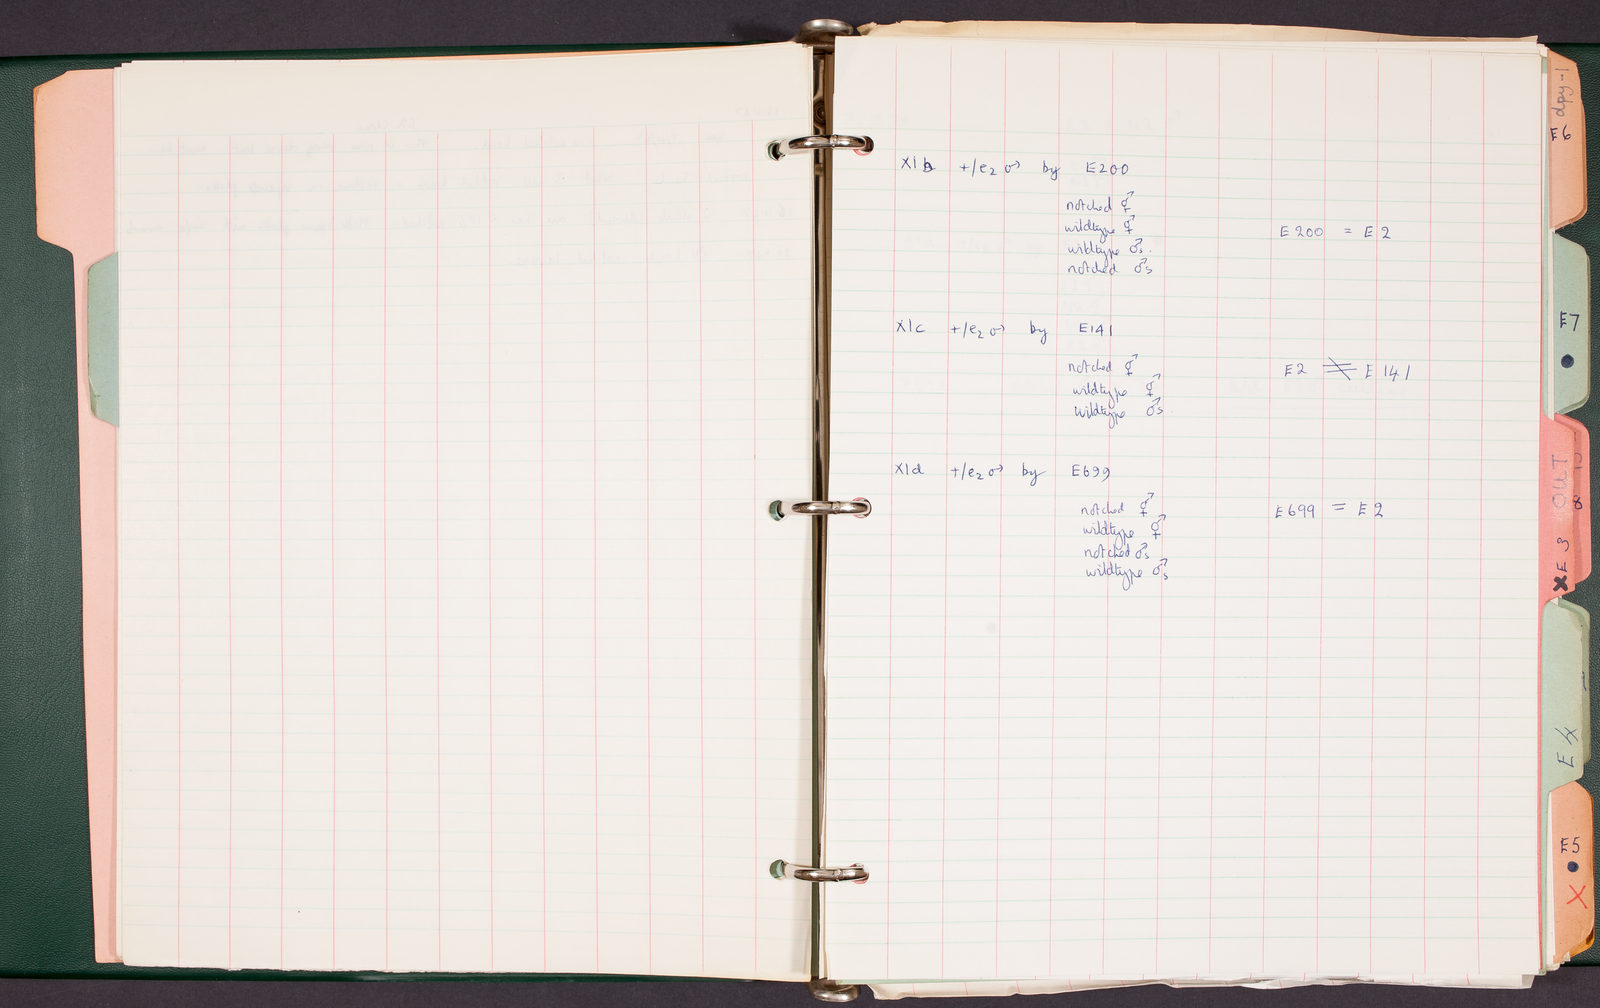 X1b +/e2 ♂ by E200
notched ⚥
wildtype ⚥
wildtype ♂s.
notched ♂s
E200 = E2
X1c +/e2 ♂ by E141
notched ⚥
wildtype ⚥
wildtype ♂s
E2 ≢ E141
X1d +/e2 ♂ by E699
notched ⚥
wildtype ⚥
notched ♂s
wildtype ♂s
E699 = E2
dpy-1
E6
E7
E3 OUT
8
E5
X